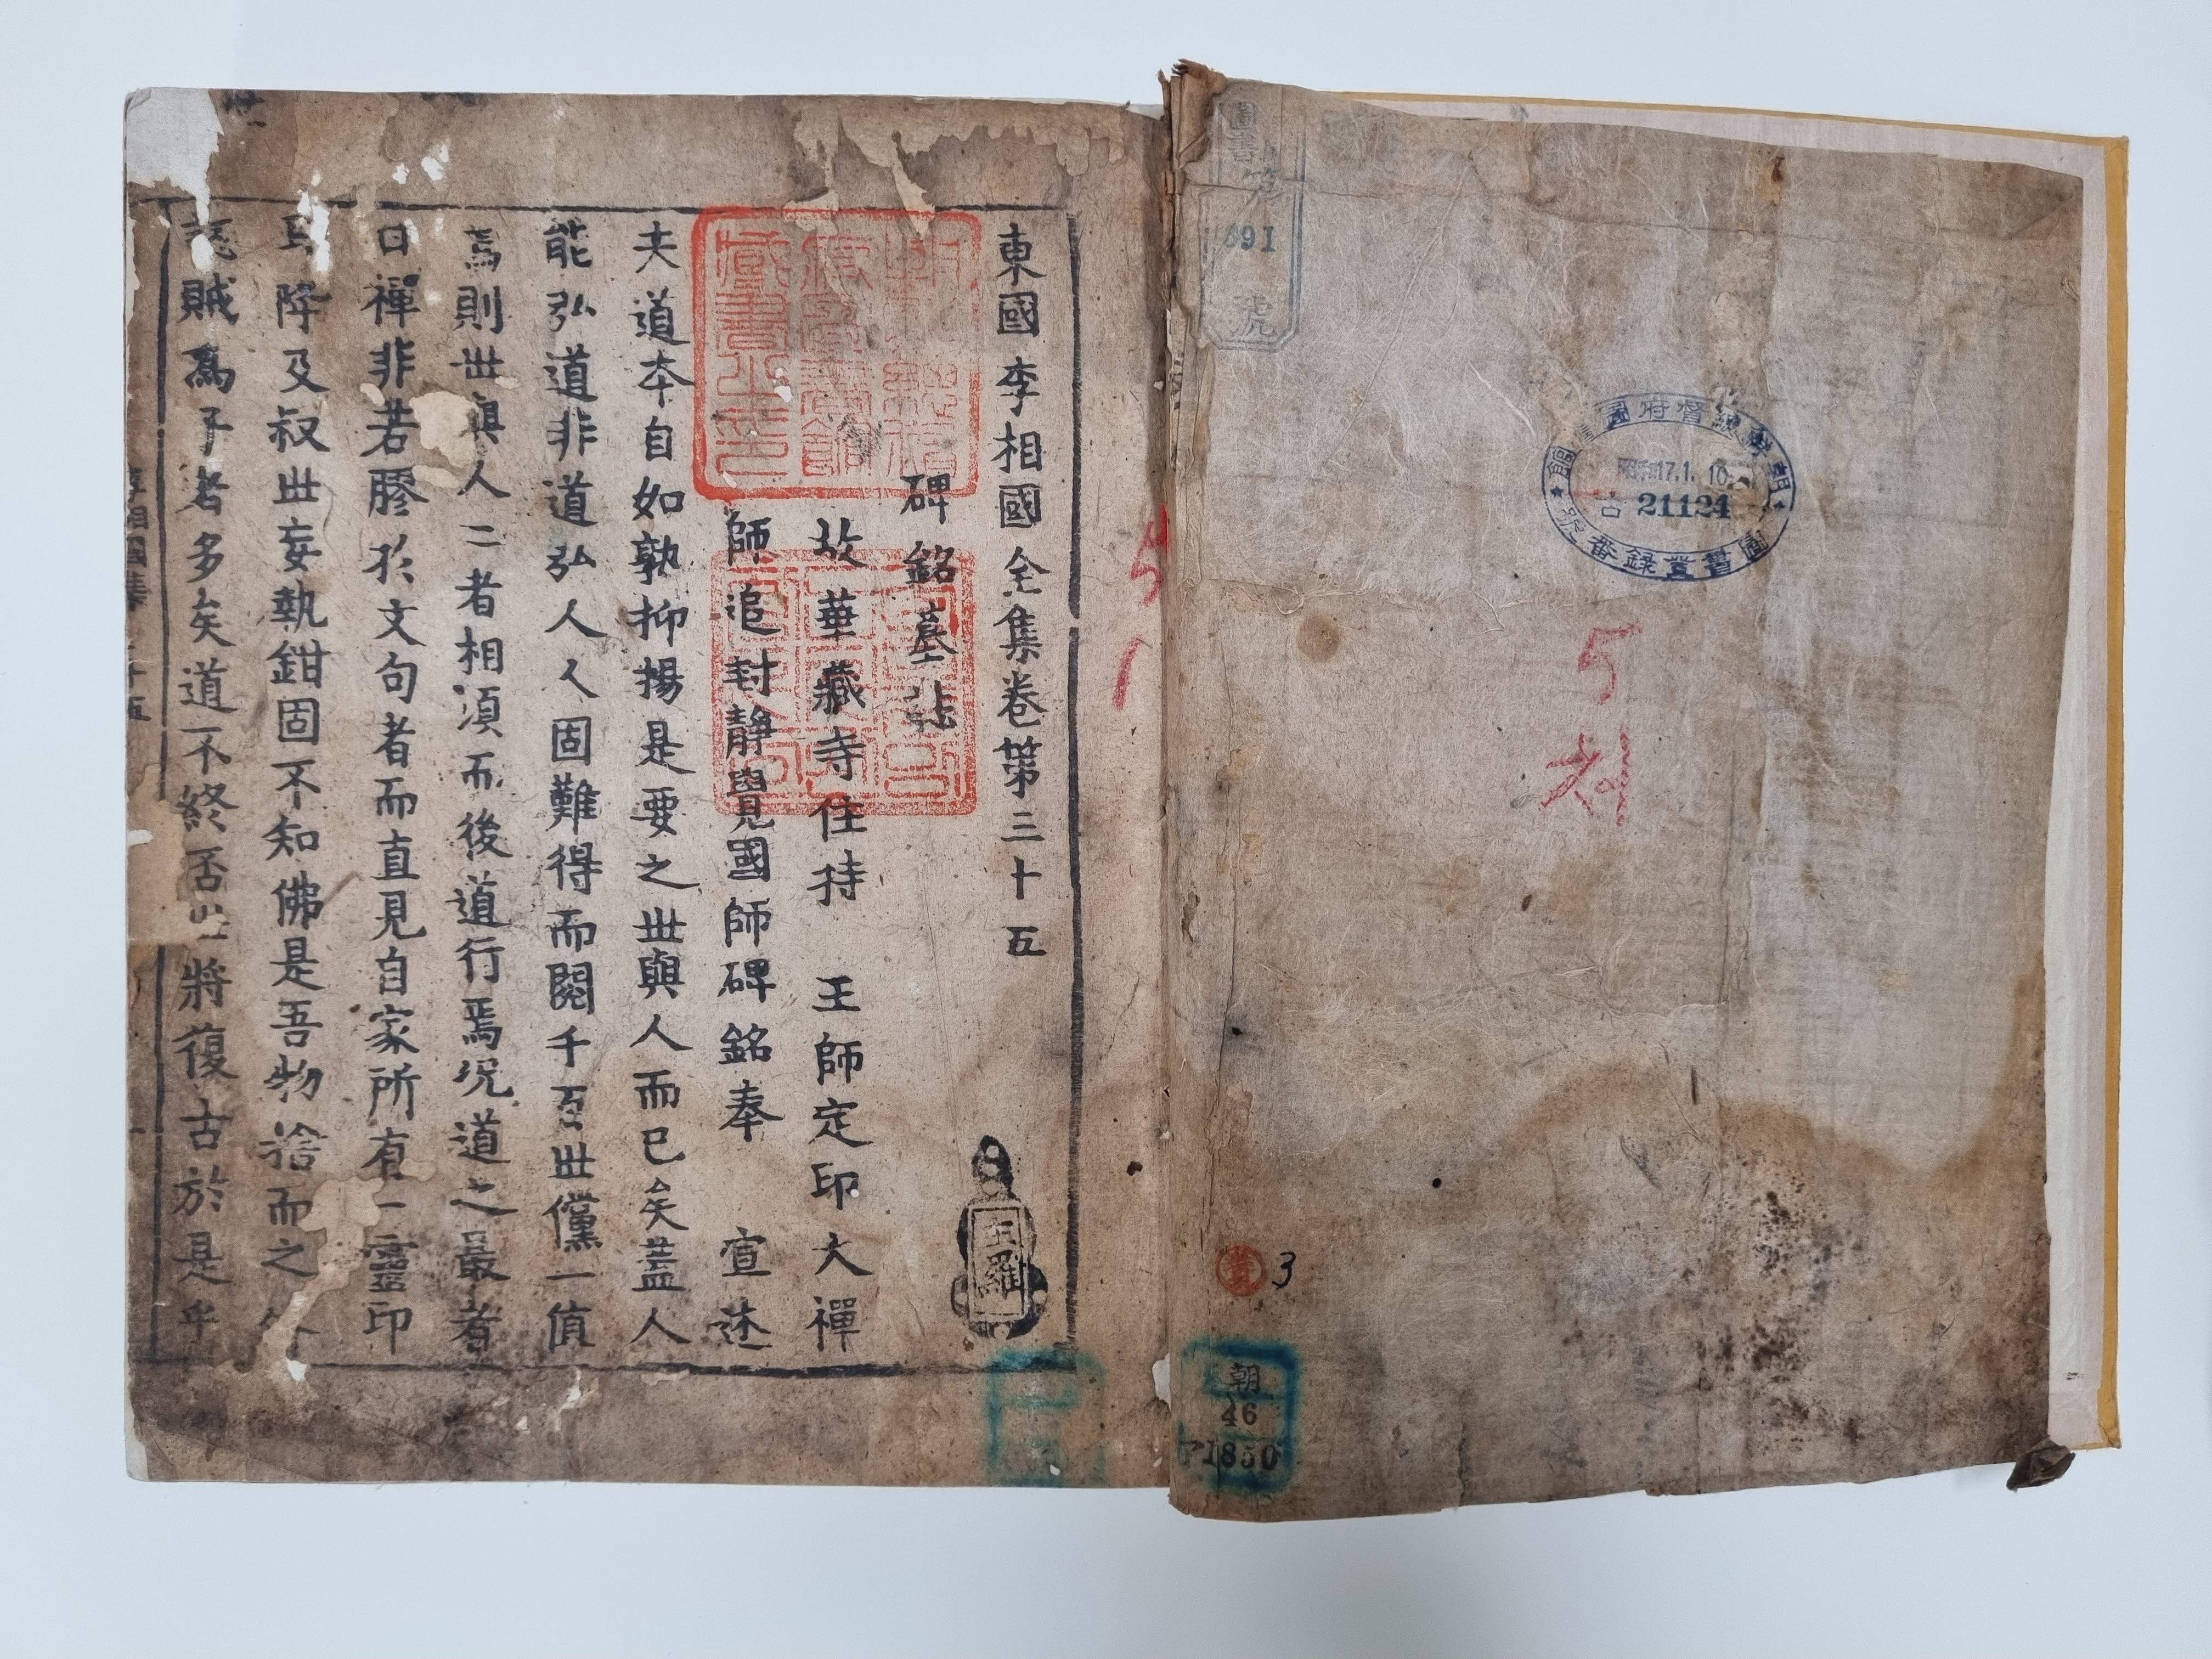 圖書第
691
號
朝鮮總督府圖書館
昭和17.1.10
古 21124
圖書登錄番號
5
책
3
朝
46
ア1850
東國李相國全集卷第三十五
碑銘墓誌
故華藏寺住持 王師定印大禪
師追封靜覺國師碑銘奉 宣述
朝鮮總督府圖書館藏書之印
夫道本自如孰抑揚是要之世與人而已矣蓋人
能弘道非道弘人人固難得而閱千百世儻一値
焉則世與人二者相須而後道行焉况道之最者
曰禪非若膠於文句者而直見自家所有一靈印
降及叔世妄執鉗固不知佛是吾物捨而之外
賊爲子者多矣道不終否世將復古於是乎
李相國集 三十五